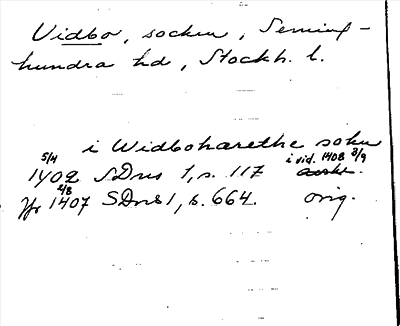 Vidbo, socken, Seming-
hundra hd, Stockh. l.
i Widboharethe sokn
5/4 i vid. 1408 3/9
1402 SDns 1, s. 117
2/8
1407 SDns 1, s. 664. orig.